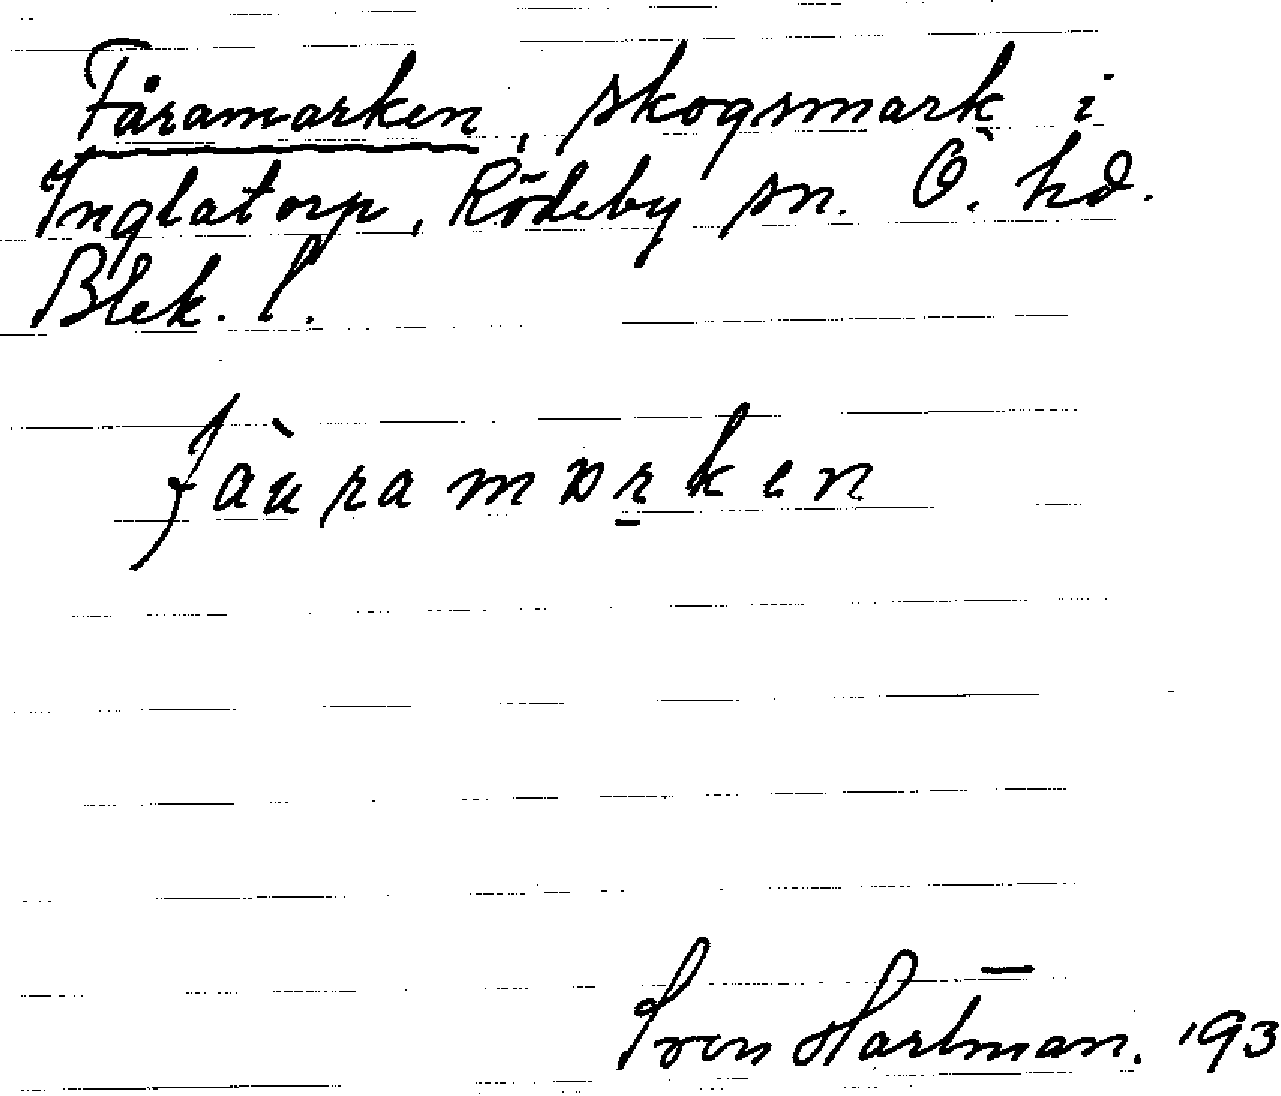 Fåramarken, skogsmark i
Inglatorp, Rödeby sn. Ö. hd.
Blek. l.
fàuramɒrken
Sven Hartman. 193